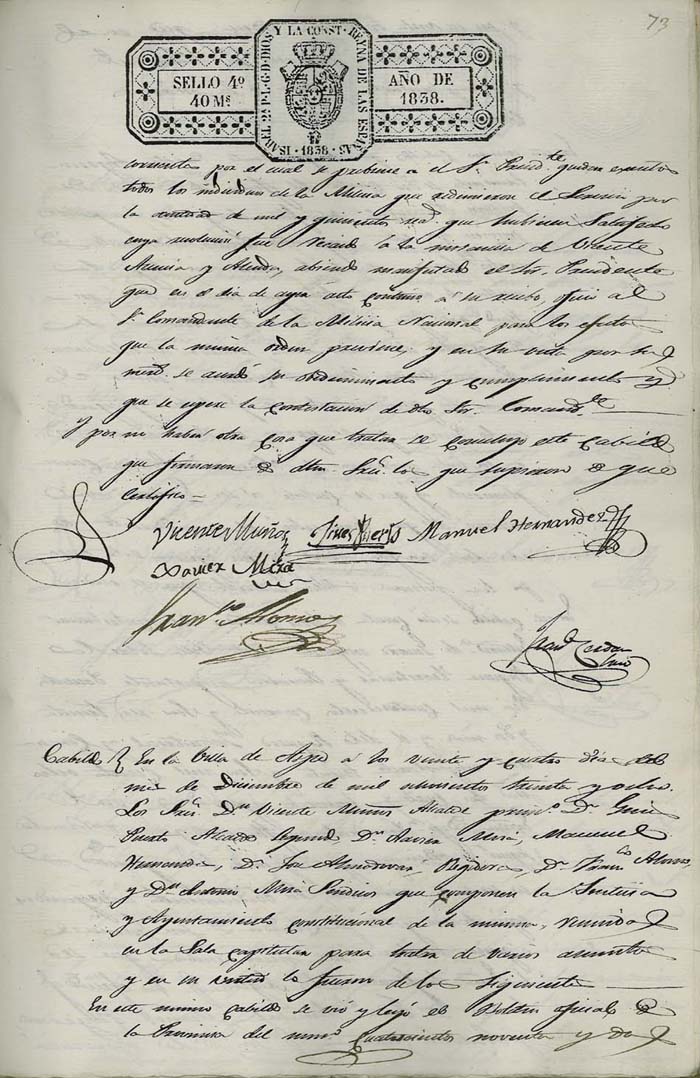 73
SELLO 4º
40 Mˢ
ISABEL 2ª P.L.G.D. DIOS Y LA CONST. REYNA DE LAS ESPAÑAS
1838
AÑO DE
1838.
por el cual se previene a el Sʳ
todos los individuos de la Milicia que redimieron el Servicio por
la cantidad de mil y quinientos que hubieren Satisfecho
cuya fue á la instancia de Vicente
y abiendo manifestado el Sor. Presidente
que en el dia de ayer á su recibo, oficio al
Sʳ Comandante de la Milicia Nacional para los efectos
que la misma orden previene; y en su vista por su
se su y cumplimiento y
que se espere la contestacion de dho Sor. Comandᵗᵉ
y por no haber otra cosa que tratar se concluyó este Cabildo
que firmaron dhos Sres. los que supieron de que
Certifico =
Vicente Muñoz
Gines Puerto
Manuel Hernandez
Xavier Mira
Franᶜᵒ Alonso
Cabildo En la Villa de Aspe á los veinte y cuatro dias del
mes de Diciembre de mil ochocientos treinta y ocho.
Los Sres. Dⁿ Vicente Muñoz Alcalde primº Dⁿ Gines
Puerto Alcalde Segundo Dⁿ Xavier Mira, Manuel
Hernandez, Dⁿ Jose Almodovar Regidores, Dⁿ Franᶜᵒ Alonso,
y Dⁿ Antonio Mira Sindicos que componen la Justicia
y Ayuntamiento constitucional de la misma, reunidos
en la Sala capitular para tratar de varios asuntos
y en su lo fueron de los Siguientes
En este mismo Cabildo se vió y leyó el Boletin oficial de
la Provincia del numº Cuatrocientos noventa y dos